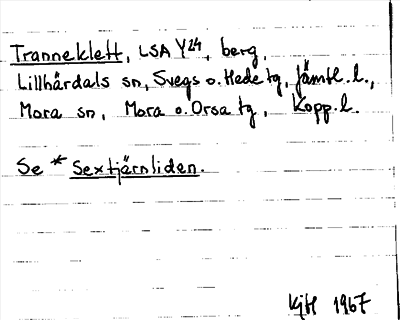 Tranneklett, LSA Y24, berg,
Lillhärdals sn, Svegs o. Hede tg, Jämtl. l.,
Mora sn, Mora o. Orsa tg, Kopp. l.
Se * Sextjärnliden.
KjH 1967